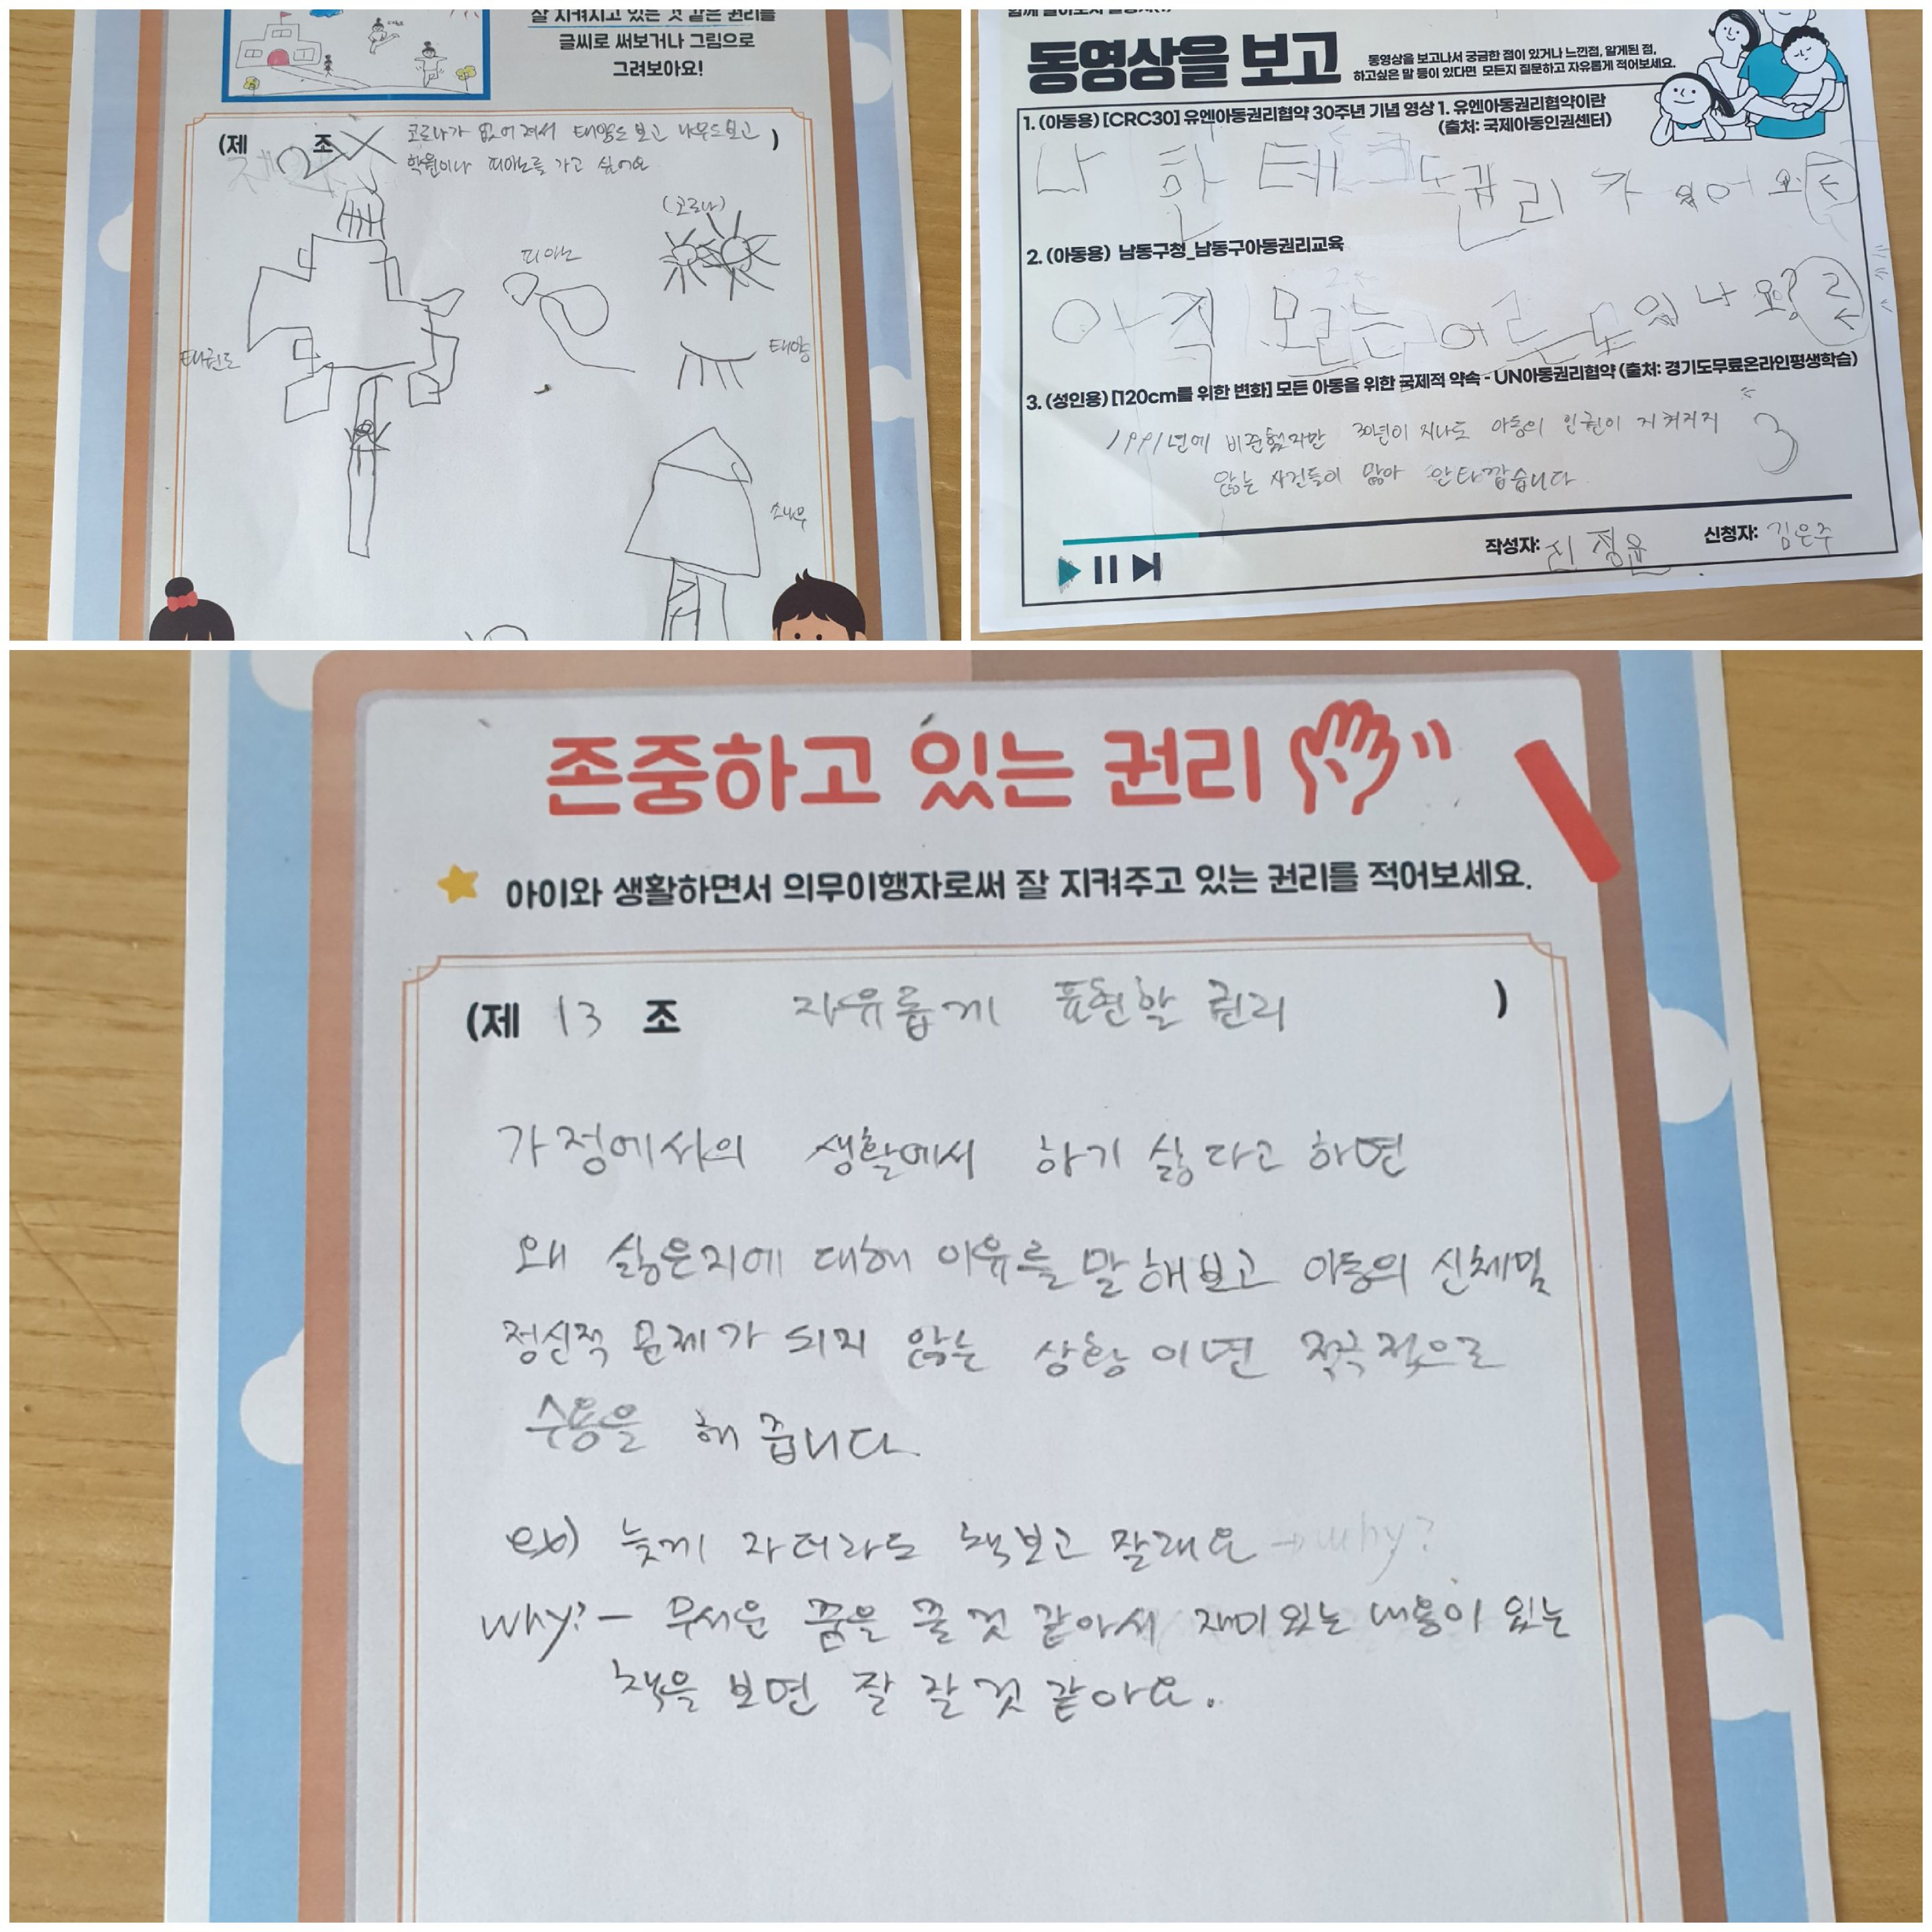 잘 지켜지고 있는 것 같은 권리를
글씨로 써보거나 그림으로
그려보아요!
(제 조 코로나가 없어져서 태양도 보고 나무도 보고 )
학원이나 피아노를 가고 싶어요
(코로나)
피아노
태권도
태양
소나무
동영상을 보고
동영상을 보고나서 궁금한 점이 있거나 느낀점, 알게된 점,
하고싶은 말 등이 있다면 모든지 질문하고 자유롭게 적어보세요.
1. (아동용) [CRC30] 유엔아동권리협약 30주년 기념 영상 1. 유엔아동권리협약이란
(출처: 국제아동인권센터)
나 한테 도 권리 가 있어 요
2. (아동용) 남동구청_남동구아동권리교육
아직 모르는 어른도 있나요?
3. (성인용) [120cm를 위한 변화] 모든 아동을 위한 국제적 약속 - UN아동권리협약 (출처: 경기도무료온라인평생학습)
1991년에 비준했지만 30년이 지나도 아동의 인권이 지켜지지
않는 사건들이 많아 안타깝습니다
3
작성자: 정윤 신청자: 김은주
존중하고 있는 권리
아이와 생활하면서 의무이행자로써 잘 지켜주고 있는 권리를 적어보세요.
(제 13 조 자유롭게 표현할 권리 )
가정에서의 생활에서 하기 싫다고 하면
왜 싫은지에 대해 이유를 말해보고 아동의 신체및
정신적 문제가 되지 않는 상황이면 적극적으로
수용을 해 줍니다.
ex) 늦게 자더라도 책보고 잘래요 → why?
why? - 무서운 꿈을 꿀 것 같아서 재미있는 내용이 있는
책을 보면 잘 잘 것 같아요.